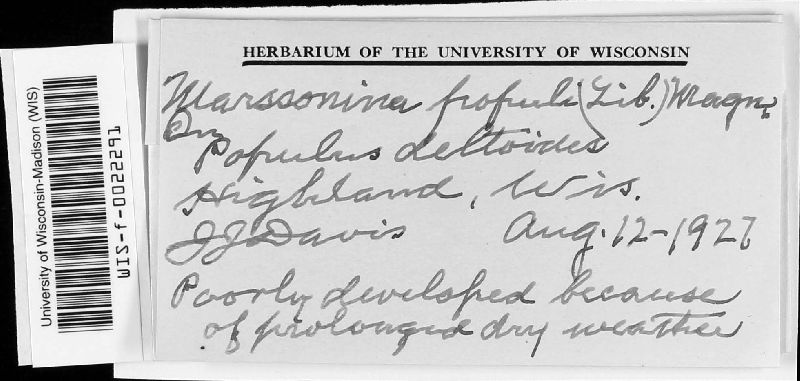 HERBARIUM OF THE UNIVERSITY OF WISCONSIN
Marssonina populi (Lib.) Magn.
On
Populus deltoides
Highland, Wis.
JJ Davis Aug. 12-1927
Poorly developed because
of prolonged dry weather
University of Wisconsin-Madison (WIS)
WIS-f-0022291